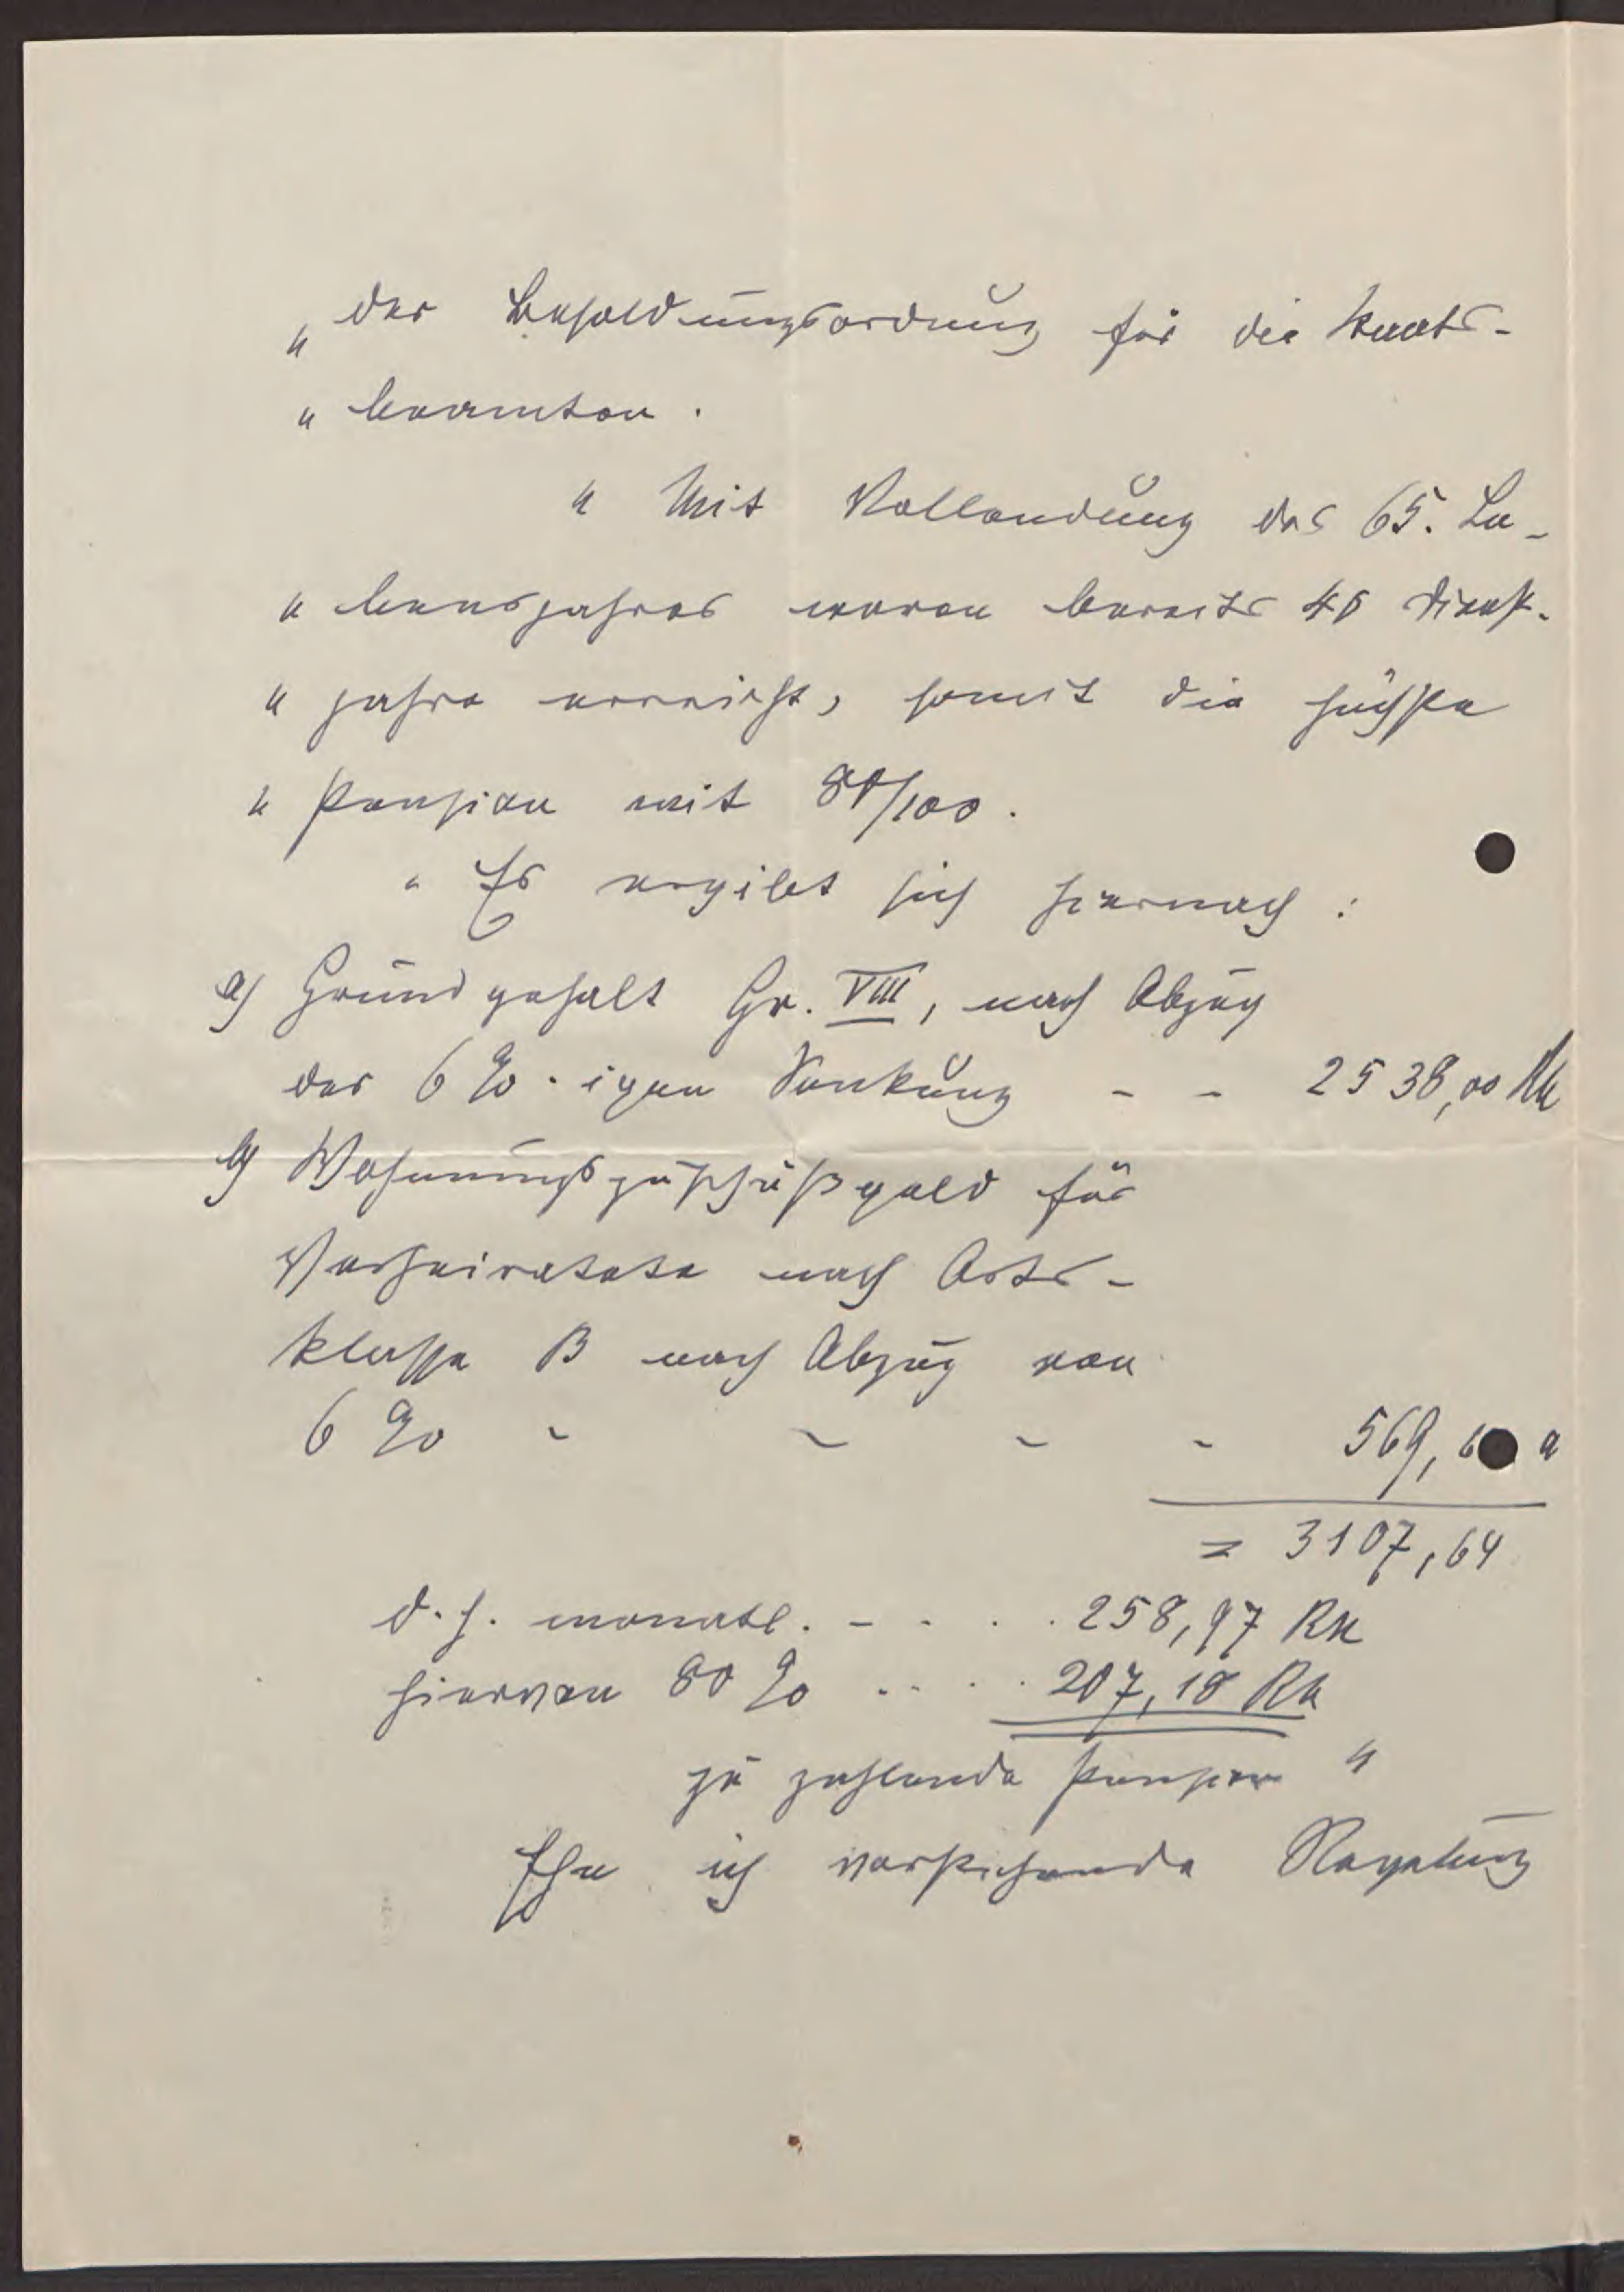 „ der Besoldungsordnung für die Staats-
„ beamten.
„ Mit Vollendung des 65. Le-
„ bensjahres waren bereits 40 Dienst-
„ jahre erreicht, somit die höchste
„ Pension mit 80/100.
„ Es ergibt sich hiernach:
a) Grundgehalt Gr. VIII, nach Abzug
der 6 %-igen Senkung - - 2538,00 RM
b) Wohnungszuschußgeld für
Verheiratete nach Orts-
klasse B nach Abzug von
6 % - - - - 569,6 "
= 3107,64
d. h. monatl. - . . . 258,97 RM
hiervon 80 % . . . . 207,18 RM
zu zahlende Pension "
Ehe ich vorstehende Regelung